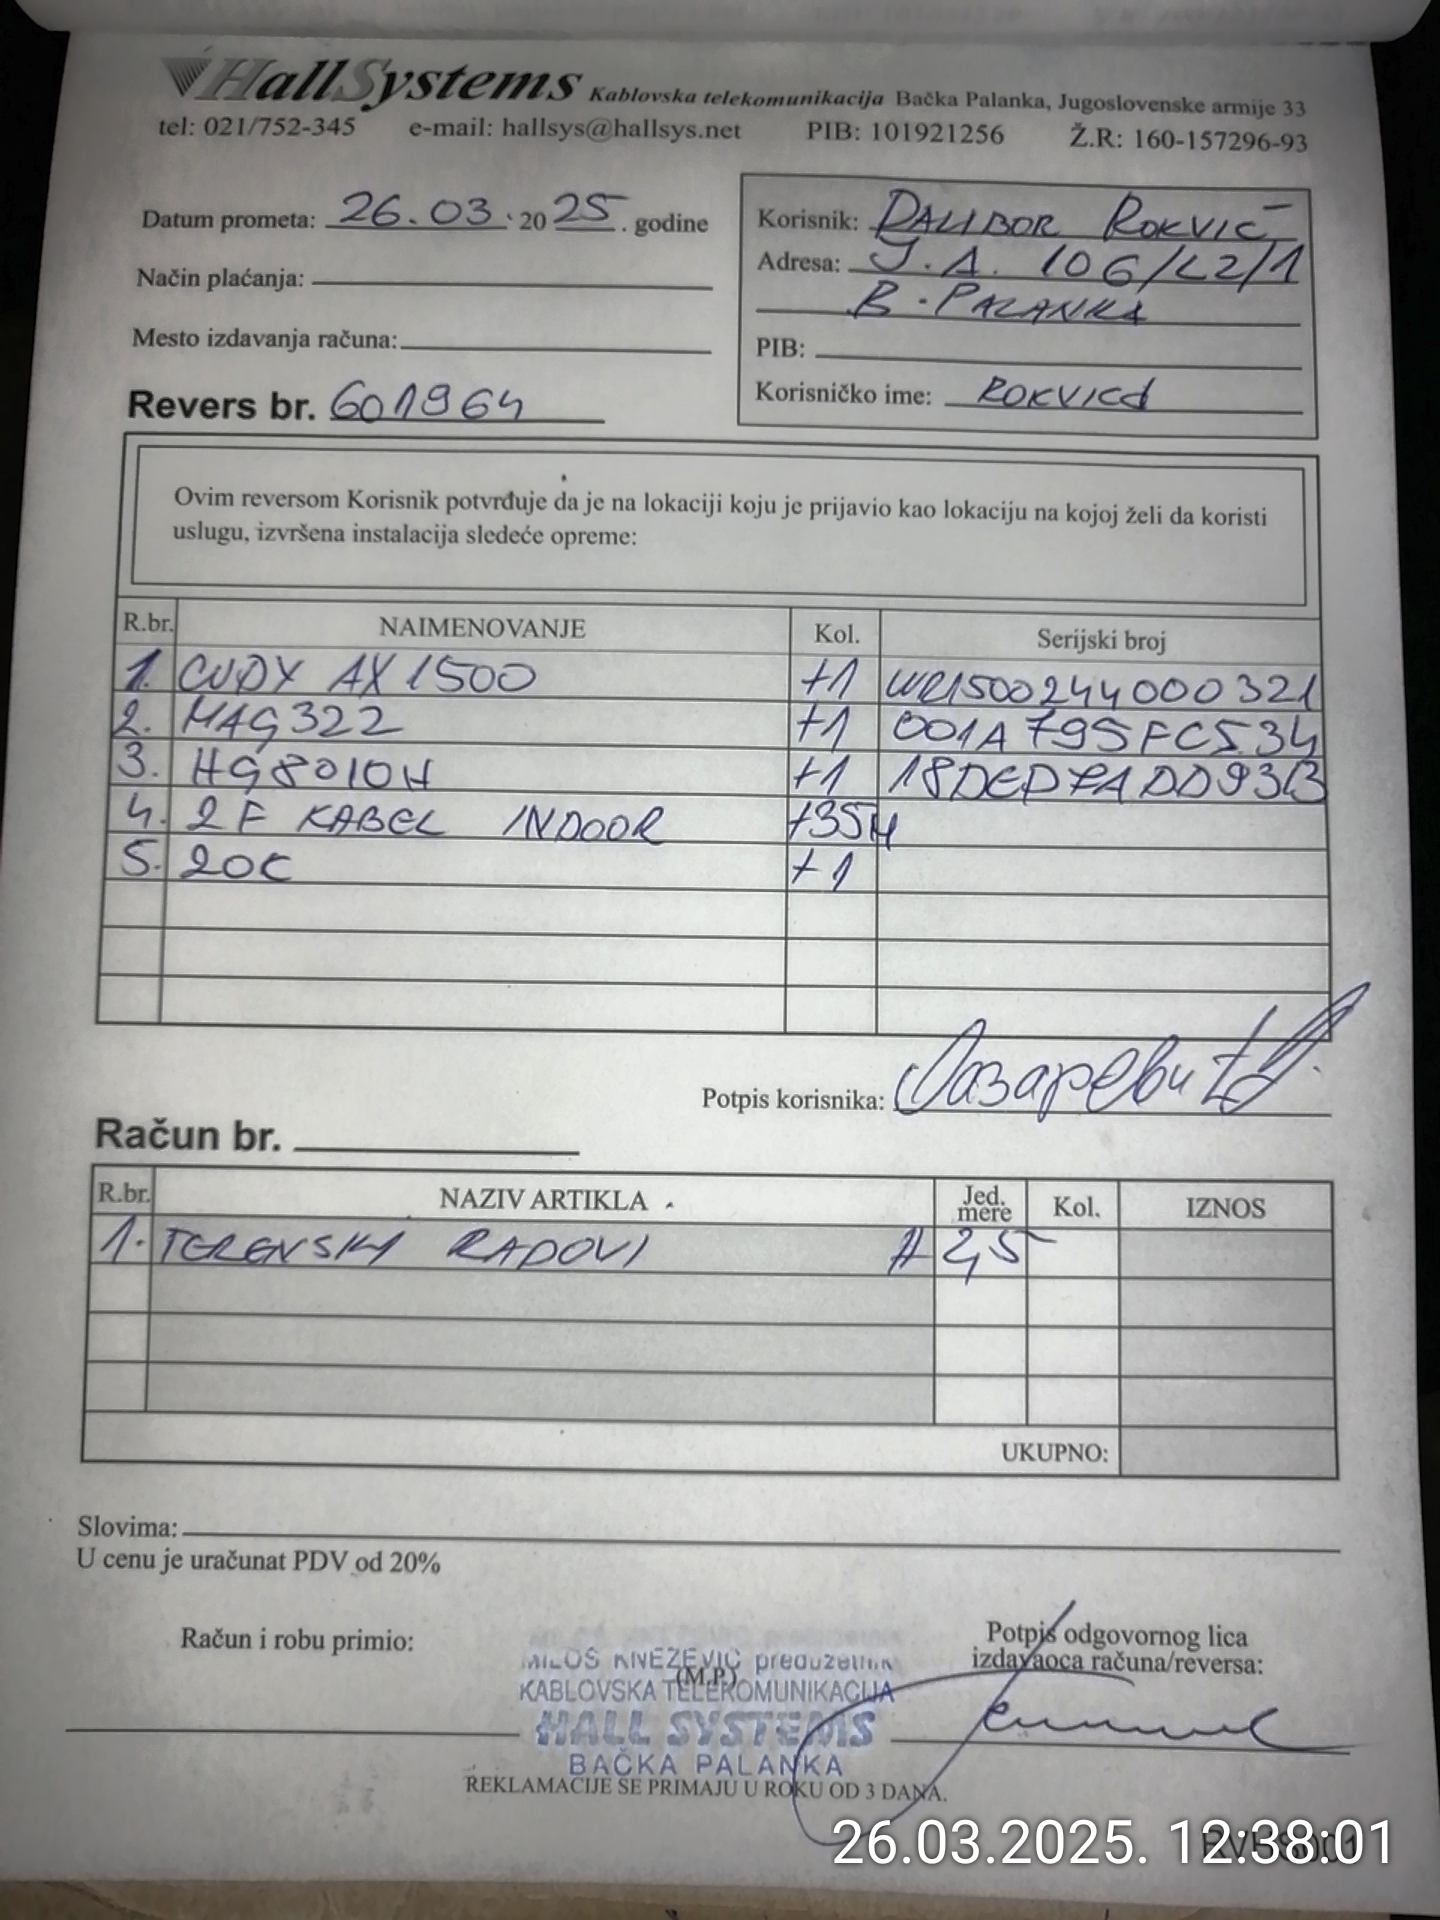 HallSystems Kablovska telekomunikacija Bačka Palanka, Jugoslovenske armije 33
tel: 021/752-345 e-mail: hallsys@hallsys.net PIB: 101921256 Ž.R: 160-157296-93
Datum prometa: 26.03.2025. godine
Način plaćanja:
Mesto izdavanja računa:
Revers br. 601964
Korisnik: DALIBOR ROKVIĆ
Adresa: J.A. 106/L2/1
B.PALANKA
PIB:
Korisničko ime: ROKVICd
Ovim reversom Korisnik potvrđuje da je na lokaciji koju je prijavio kao lokaciju na kojoj želi da koristi
uslugu, izvršena instalacija sledeće opreme:
R.br. NAIMENOVANJE Kol. Serijski broj
1. CUDY AX1500 +1 WR1500244000321
2. MAG322 +1 001A795FC534
3. HG8010H +1
4. 2F KABEL INDOOR +35M
5. +1
Potpis korisnika: Лазаревић
Račun br.
R.br. NAZIV ARTIKLA Jed. mere Kol. IZNOS
1. TERENSKI RADOVI H 2,5
UKUPNO:
Slovima:
U cenu je uračunat PDV od 20%
Računi i robu primio:
(M.P.)
Potpis odgovornog lica
izdavaoca računa/reversa:
MILOŠ KNEŽEVIĆ preduzetnik
KABLOVSKA TELEKOMUNIKACIJA
HALL SYSTEMS
BAČKA PALANKA
REKLAMACIJE SE PRIMAJU U ROKU OD 3 DANA.
26.03.2025. 12:38:01